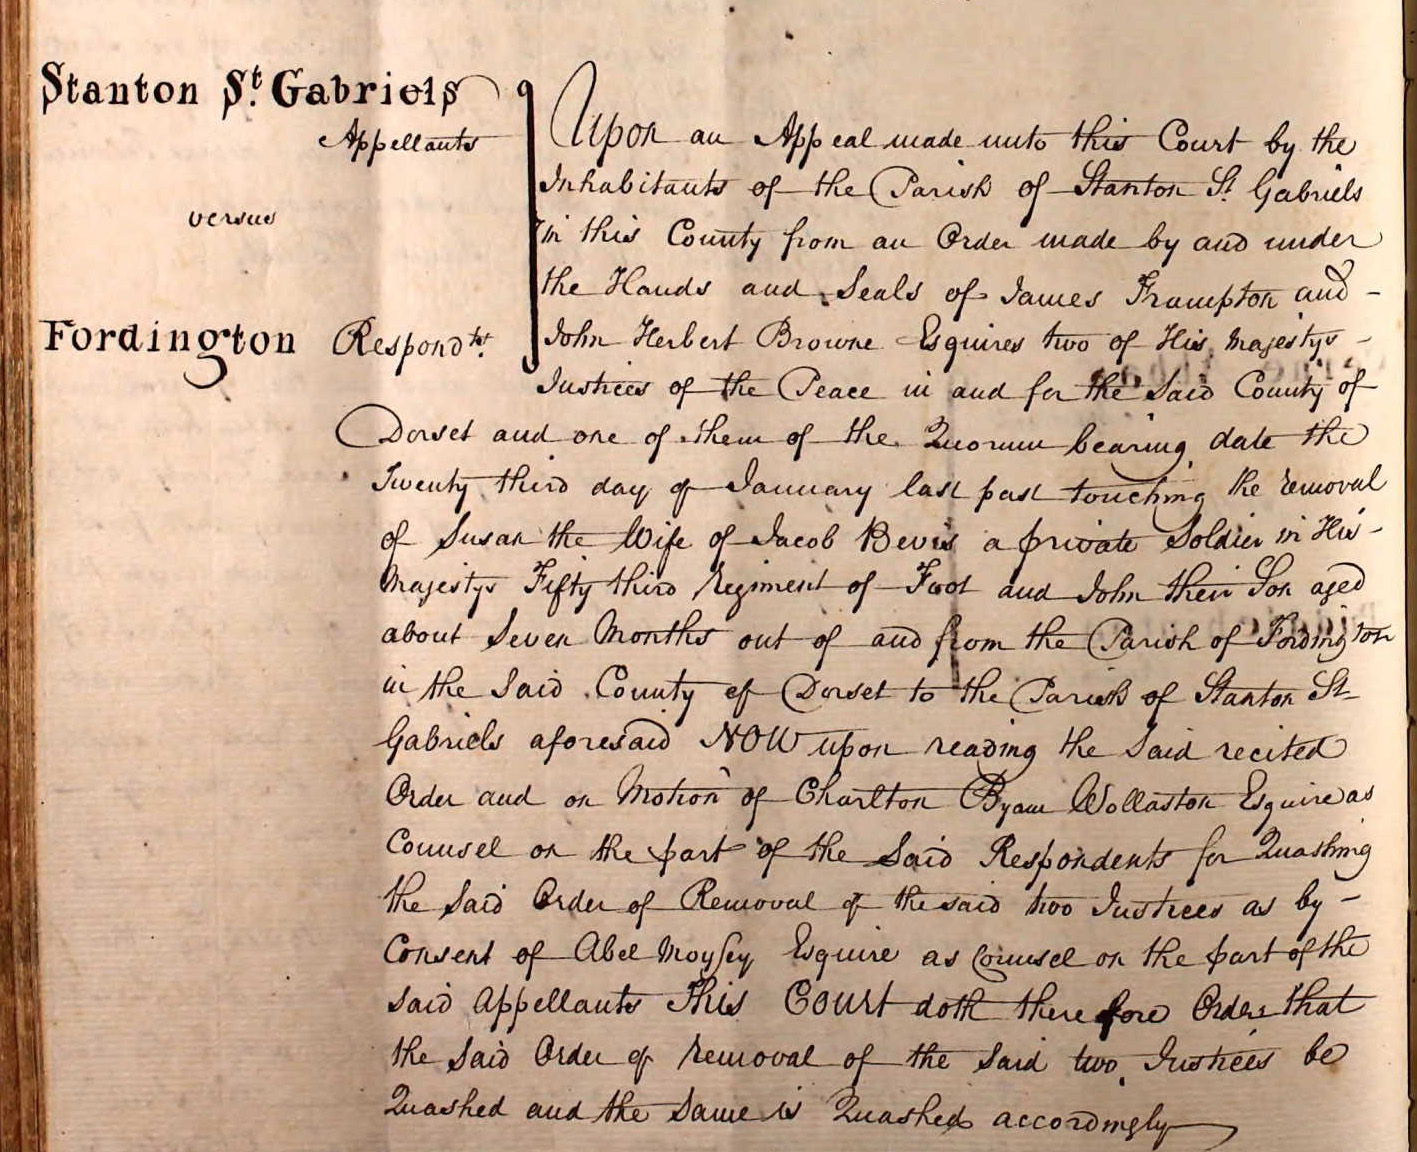 Stanton St. Gabriels
Appellants
versus
Fordington Respondts.
Upon an Appeal made unto this Court by the
Inhabitants of the Parish of Stanton St. Gabriels
in this County from an Order made by and under
the Hands and Seals of James Frampton and -
John Herbert Browne Esquires two of His Majestys -
Justices of the Peace in and for the Said County of
Dorset and one of them of the Quorum bearing date the
Twenty third day of January last past touching the removal
of Susan the Wife of Jacob Bevis a private Soldier in His -
Majestys Fifty third Regiment of Foot and John their Son aged
about Seven Months out of and from the Parish of Fordington
in the Said County of Dorset to the Parish of Stanton St
Gabriels aforesaid NOW upon reading the Said recited
Order and on Motion of Charlton Byam Wollaston Esquire as
Counsel on the part of the Said Respondents for Quashing
the Said Order of Removal of the said two Justices as by -
Consent of Abel Moysey Esquire as Counsel on the part of the
said Appellants This Court doth therefore Order that
the Said Order of removal of the Said two Justices be
Quashed and the Same is Quashed accordingly